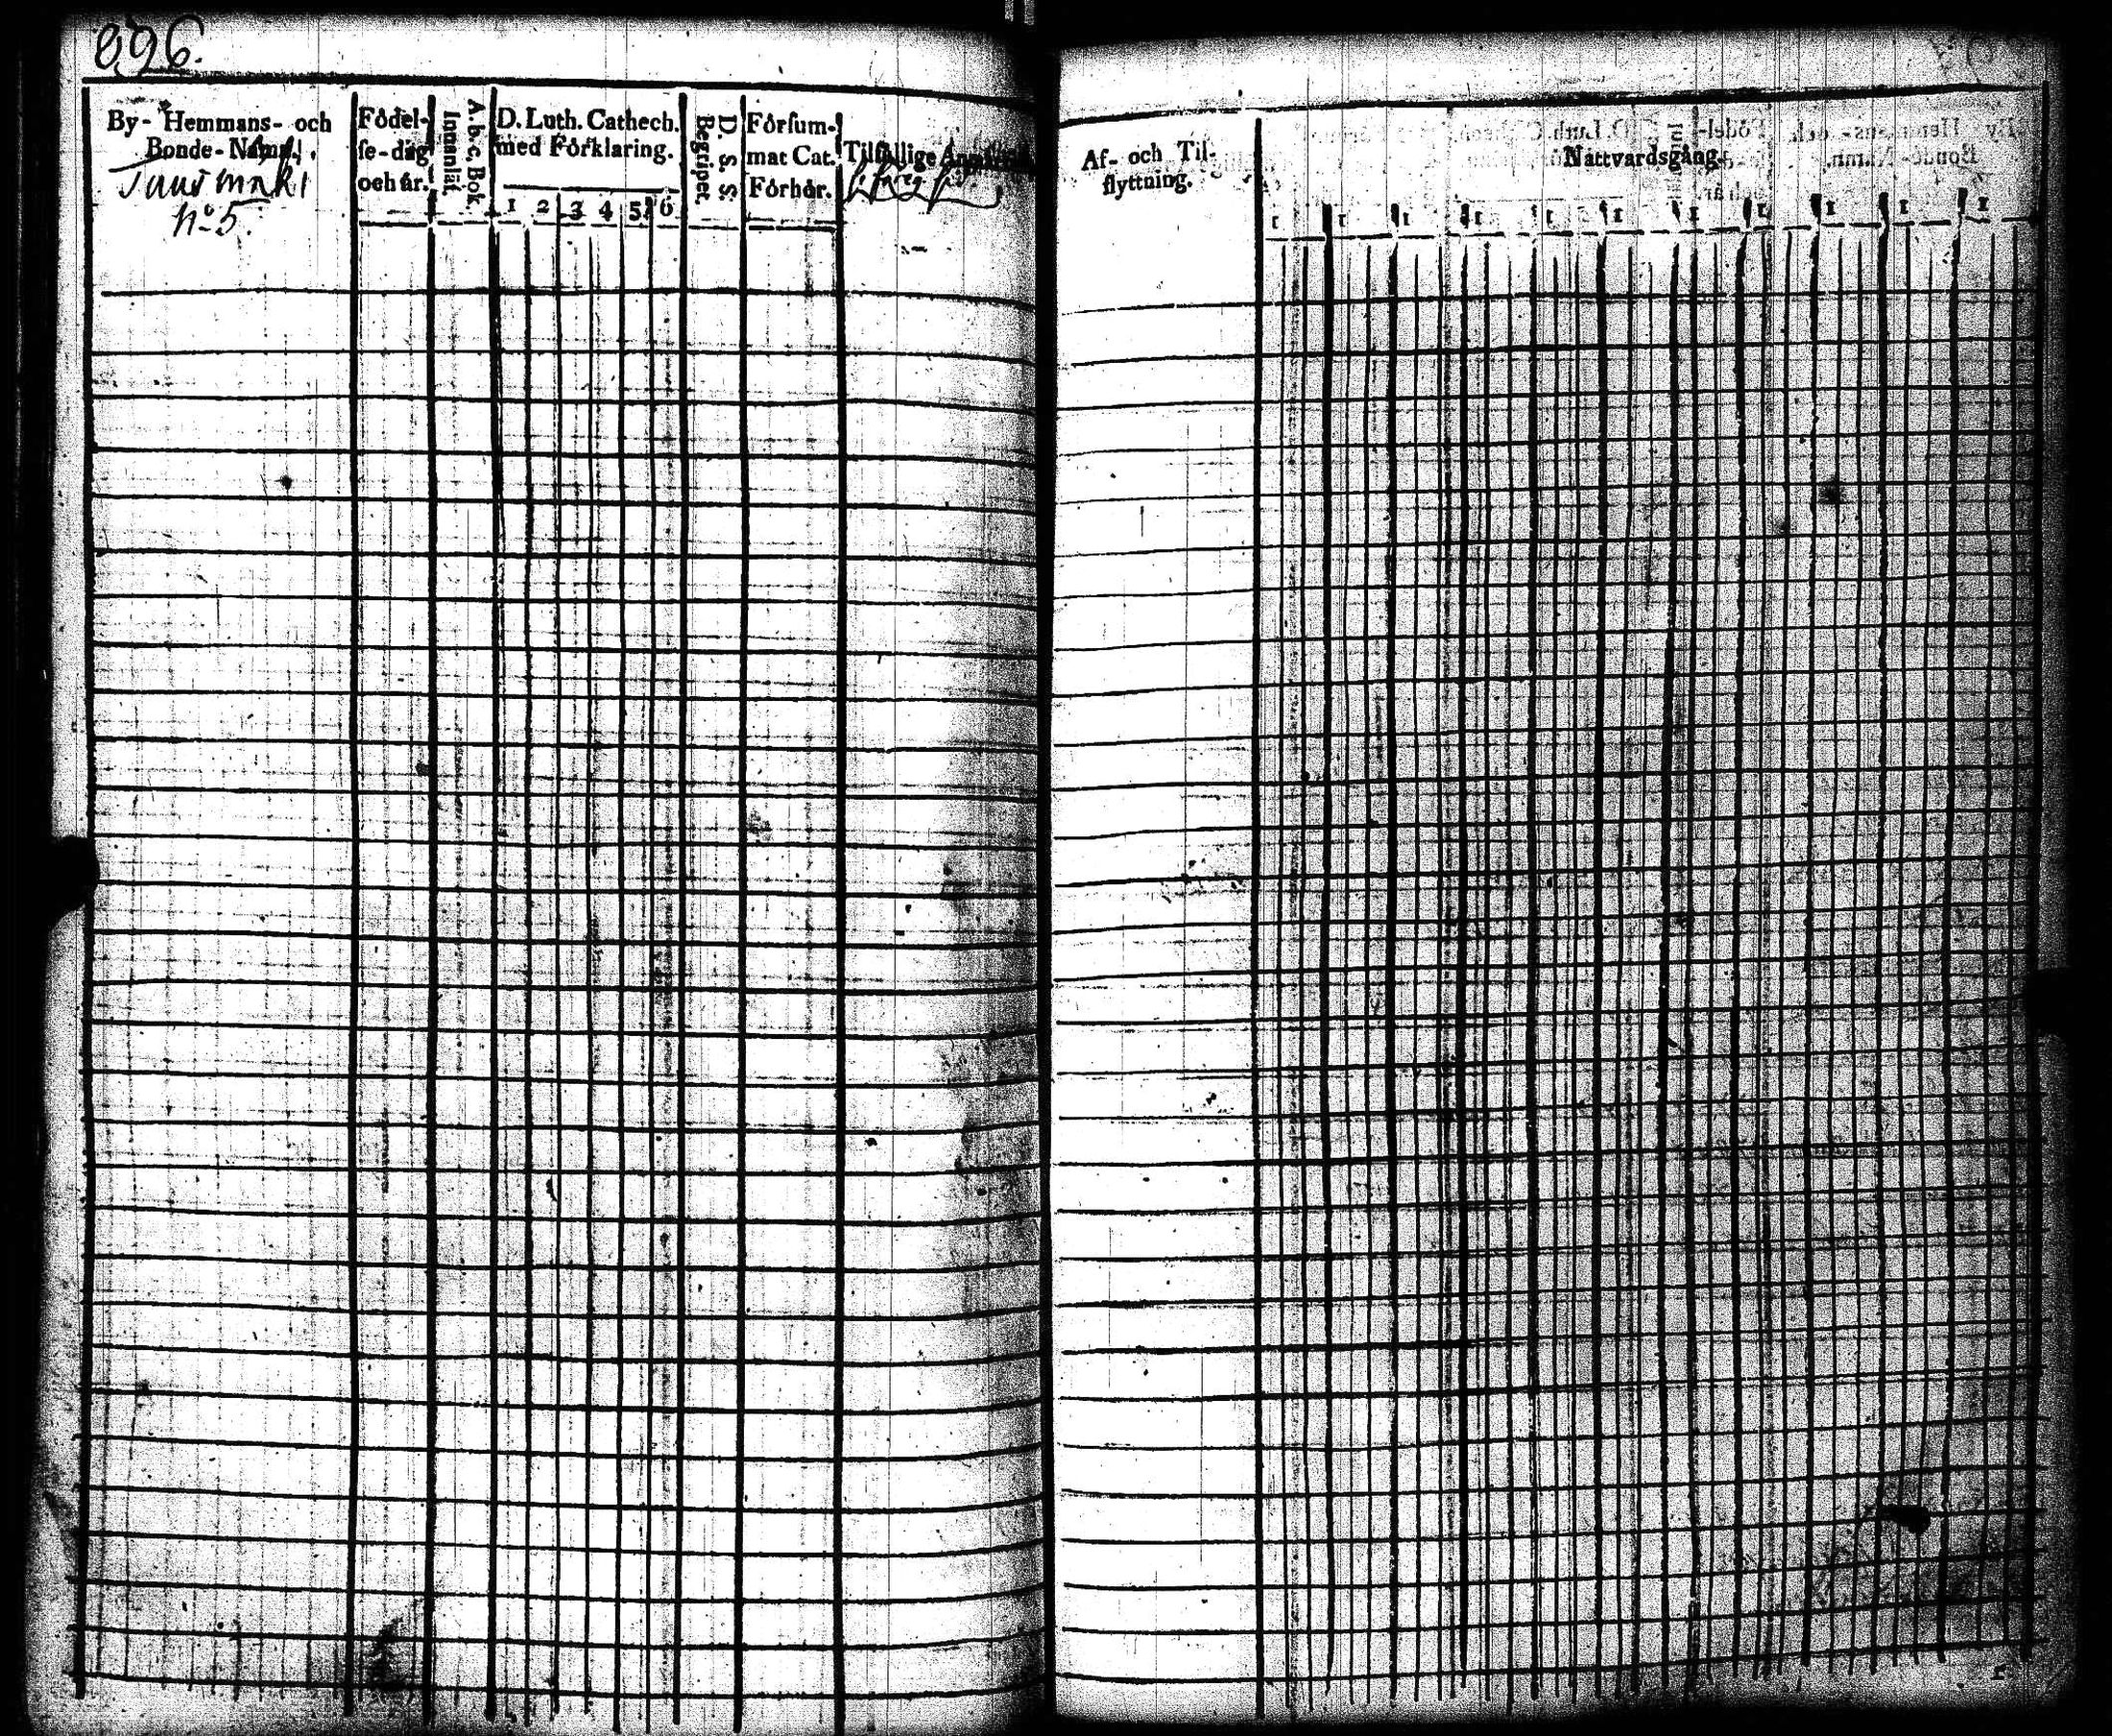 896.
By- Hemmans- och
Bonde-Namn.
N:o 5.
Födel-
se-dag
och år.
Innanläs.
A. b. c. Bok.
D. Luth. Cathech.
med Förklaring.
1 2 3 4 5 6
D. S. S.
Begripet.
Försum-
mat Cat.
Förhör.
Tilfällige
Af- och Til-
flyttning.
Nattvardsgång.
1 1 1 1 1 1 1 1 1 1 1